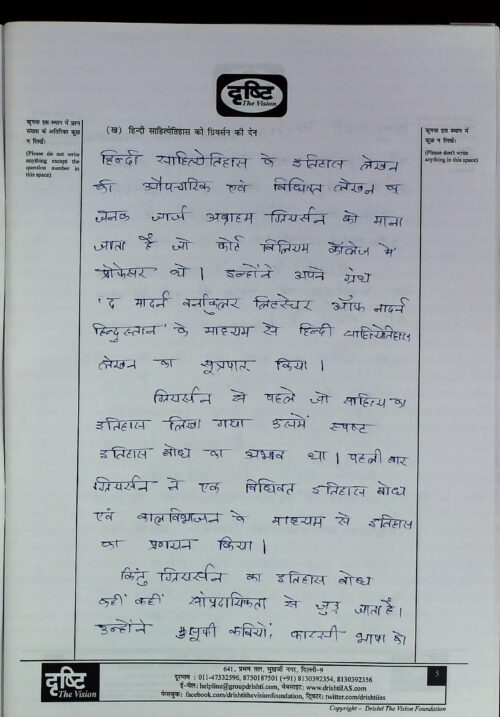 दृष्टि
The Vision
कृपया इस स्थान में प्रश्न
संख्या के अतिरिक्त कुछ
न लिखें।
(Please do not write
anything except the
question number in
this space)
(ख) हिन्दी साहित्येतिहास को ग्रियर्सन की देन
कृपया इस स्थान में
कुछ न लिखें।
(Please don't write
anything in this space)
हिन्दी साहित्येतिहास के इतिहास लेखन
की औपचारिक एवं विधिवत लेखन का
जनक जार्ज अब्राहम ग्रियर्सन को माना
जाता है जो फोर्ट विलियम कॉलेज में
प्रोफेसर थे। इन्होंने अपने ग्रंथ
'द मार्डन वर्नाकुलर लिटरेचर ऑफ नार्दन
हिन्दुस्तान' के माध्यम से हिन्दी साहित्येतिहास
लेखन का सूत्रपात किया।
ग्रियर्सन से पहले जो साहित्य का
इतिहास लिखा गया उसमें स्पष्ट
इतिहास बोध का अभाव था। पहली बार
ग्रियर्सन ने एक विधिवत इतिहास बोध
एवं कालविभाजन के माध्यम से इतिहास
का प्रणयन किया।
किंतु ग्रियर्सन का इतिहास बोध
कहीं कहीं सांप्रदायिकता से जुड़ जाता है।
उन्होंने कवियों, फारसी भाषा को
641, प्रथम तल, मुखर्जी नगर, दिल्ली-9
दूरभाष : 011-47532596, 8750187501 (+91) 8130392354, 8130392356
ई-मेल: helpline@groupdrishti.com, वेबसाइट: www.drishtiIAS.com
फेसबुक: facebook.com/drishtithevisionfoundation, ट्विटर: twitter.com/drishtiias
5
दृष्टि
The Vision
Copyright – Drishti The Vision Foundation